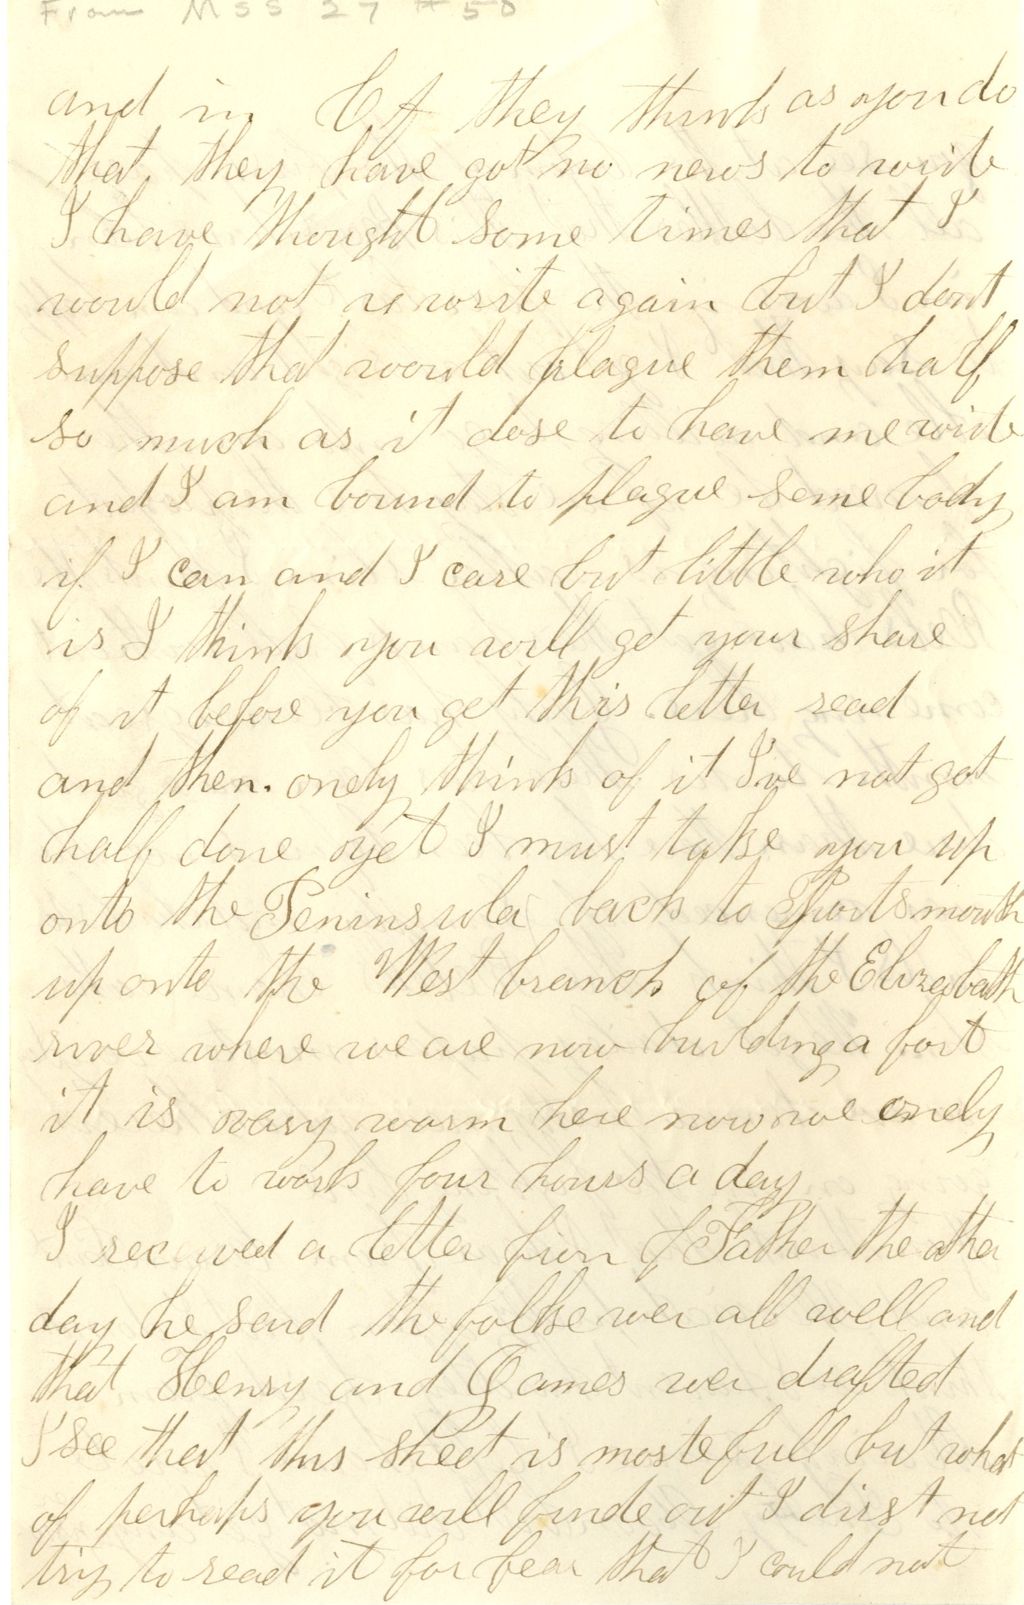 From MSS 27 #50
and in Ct they think as you do
that they have got no news to write
I have thought some times that I
would not write again but I dont
suppose that would plague them half
so much as it dose to have me write
and I am bound to plague some body
if I can and I care but little who it
is I think you will get your share
of it before you get this letter read
and then. onely think of it I've not got
half done yet I must take you up
onto the Peninsula back to Portsmouth
up onto the West branch of the Elizabath
river where we are now building a fort
it is vary warm here now we onely
have to work four hours a day
I received a letter from Father the other
day he said the folkse wer all well and
that Henry and James wer drafted
I see that this sheet is moste full but what
of perhaps you will finde out I dirst not
try to read it for fear that I could not